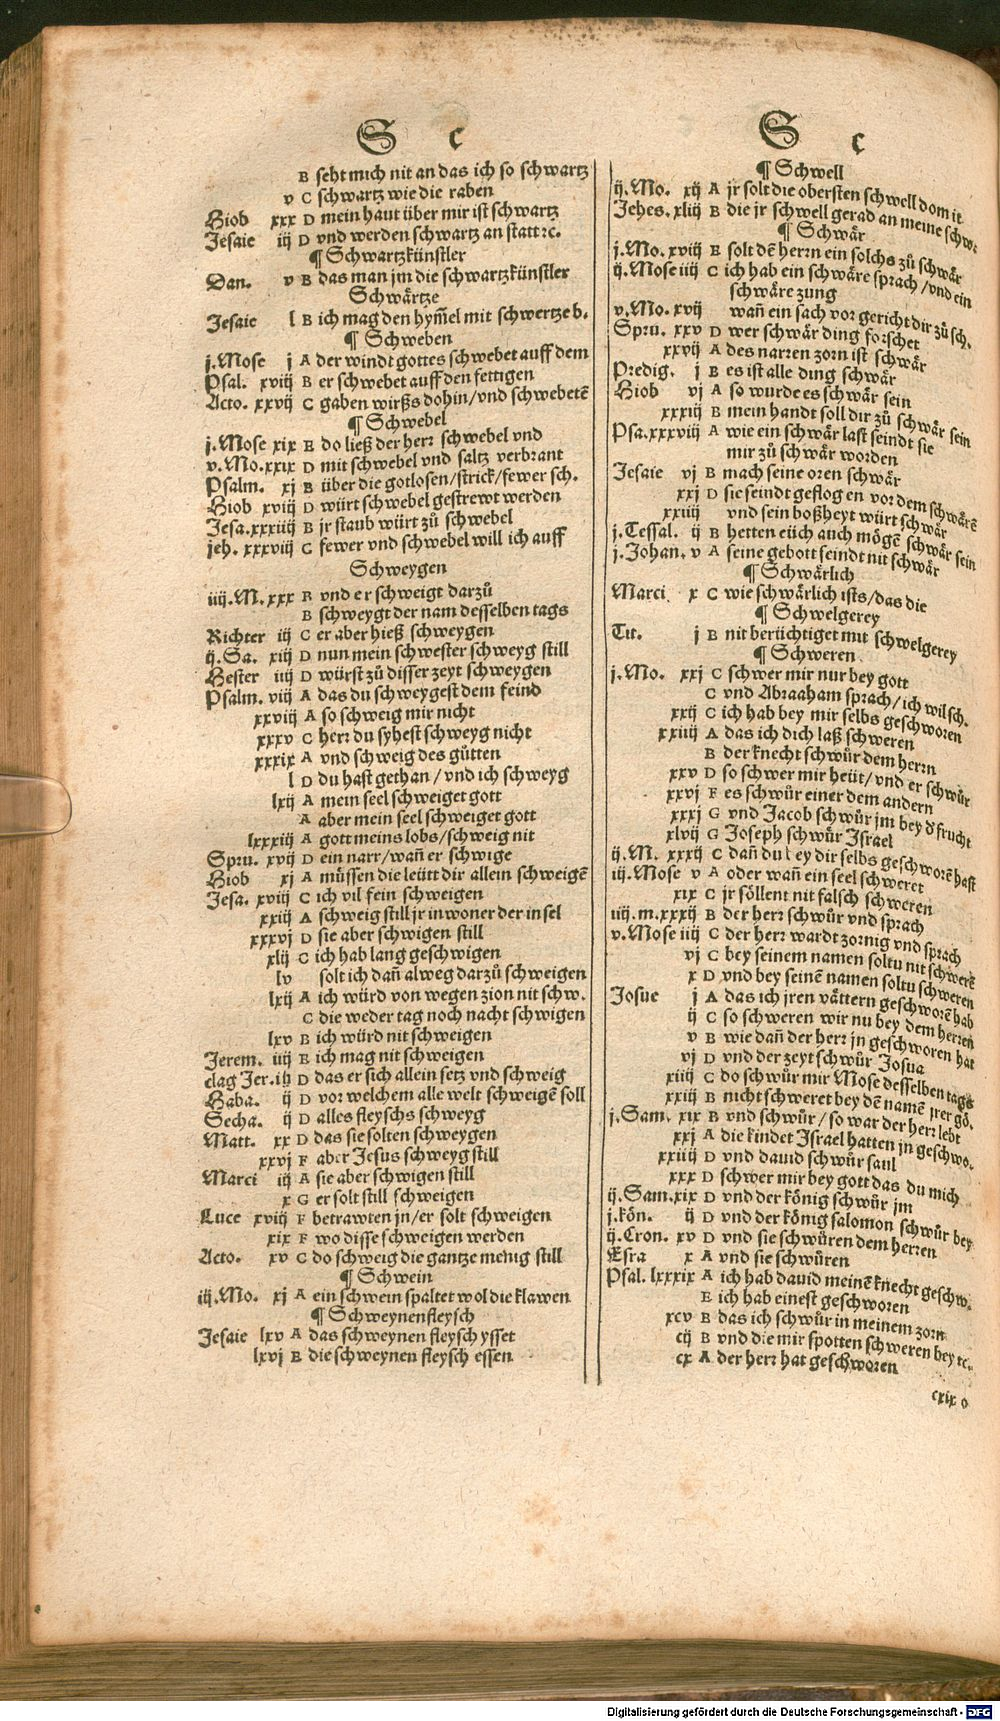 S c
B seht mich nit an das ich so schwartz
v C schwartz wie die raben
Hiob xxx D mein haut über mir ist schwartz
Jesaie iij D vnd werden schwartz an statt ꝛc.
¶ Schwartzkünstler
Dan. v B das man jm die schwartzkünstler
Schwärtze
Jesaie l B ich mag den hym̃el mit schwertze b.
¶ Schweben
j.Mose j A der windt gottes schwebet auff dem
Psal. xviij B er schwebet auff den fettigen
Acto. xxvij C gaben wirßs dohin/vnd schwebetẽ
¶ Schwebel
j.Mose xix E do ließ der herr schwebel vnd
v.Mo.xxix D mit schwebel vnd saltz verbrant
Psalm. xj B über die gotlosen/strick/fewer sch.
Hiob xviij D würt schwebel gestrewt werden
Jesa.xxxiiij B jr staub würt zů schwebel
jeh. xxxviij G fewer vnd schwebel will ich auff
Schweygen
iiij.M.xxx B vnd er schweigt darzů
B schweygt der nam desselben tags
Richter iij C er aber hieß schweygen
ij.Sa. xiij D nun mein schwester schweyg still
Hester iiij D würst zů disser zeyt schweygen
Psalm. viij A das du schweygest dem feind
xxviij A so schweig mir nicht
xxxv C herr du syhest schweyg nicht
xxxix A vnd schweig des gůtten
l D du hast gethan/vnd ich schweyg
lxij A mein seel schweiget gott
A aber mein seel schweiget gott
lxxxiij A gott meins lobs/schweig nit
Spru. xvij D ein narr/wañ er schwige
Hiob xj A müssen die leütt dir allein schweigẽ
Jesa. xviij C ich vil fein schweigen
xxiij A schweig still jr inwoner der insel
xxxvj D sie aber schwigen still
xlij C ich hab lang geschwigen
lv solt ich dañ alweg darzů schweigen
lxij A ich würd von wegen zion nit schw.
C die weder tag noch nacht schwigen
lxv B ich würd nit schweigen
Jerem. iiij E ich mag nit schweigen
clag Jer.iij D das er sich allein setz vnd schweig
Haba. ij D vor welchem alle welt schweigẽ soll
Secha. ij D alles fleyschs schweyg
Matt. xx D das sie solten schweygen
xxvj F aber Jesus schweyg still
Marci iij A sie aber schwigen still
x G er solt still schweigen
Luce xviij F betrawten jn/er solt schweigen
xix F wo disse schweigen werden
Acto. xv C do schweig die gantze menig still
¶ Schwein
iij.Mo. xj A ein schwein spaltet wol die klawen
¶ Schweynenfleysch
Jesaie lxv A das schweynen fleysch ysset
lxvj B die schweynen fleysch essen
S c
¶ Schwell
ij.Mo. xij A jr solt die obersten schwell domit
Jehes. xliij B die jr schwell gerad an meine schw.
¶ Schwär
j.Mo. xviij E solt dẽ herrn ein solchs zů schwär
ij.Mose iiij C ich hab ein schwäre sprach/vnd ein
schwäre zung
v.Mo. xvij wañ ein sach vor gericht dir zů sch.
Spru. xxv D wer schwär ding forschet
xxvij A des narren zorn ist schwär
Predig. j B es ist alle ding schwär
Hiob vj A so wurde es schwär sein
xxxiij B mein handt soll dir zů schwär sein
Psa.xxxviij A wie ein schwär last seindt sie
mir zů schwär worden
Jesaie vj B mach seine oren schwär
xxj D sie seindt geflogen vor dem schwärẽ
xxiiij vnd sein boßheyt würt schwär
j.Tessal. ij B hetten eüch auch mögẽ schwär sein
j.Johan. v A seine gebott seindt nit schwär
¶ Schwärlich
Marci x C wie schwärlich ists/das die
¶ Schwelgerey
Tit. j B nit berüchtiget mit schwelgerey
¶ Schweren
j.Mo. xxj C schwer mir nur bey gott
C vnd Abraaham sprach/ich wil sch.
xxij C ich hab bey mir selbs geschworen
xxiiij A das ich dich laß schweren
B der knecht schwůr dem herrn
xxv D so schwer mir heüt/vnd er schwůr
xxvj F es schwůr einer dem andern
xxxj G vnd Jacob schwůr jm bey ð frucht
xlvij G Joseph schwůr Israel
ij.M. xxxij C dañ du bey dir selbs geschworẽ hast
iij.Mose v A oder wañ ein seel schweret
xix C jr söllent nit falsch schweren
iiij.m.xxxij B der herr schwůr vnd sprach
v.Mose iiij C der herr wardt zornig vnd sprach
vj C bey seinem namen soltu nit schwerẽ
x D vnd bey seinẽ namen soltu schweren
Josue j A das ich jren vättern geschworẽ hab
ij C so schweren wir nu bey dem herren
v B wie dañ der herr jn geschworen hat
vj D vnd der zeyt schwůr Josua
xiiij C do schwůr mir Mose desselben tags
xxiij B nicht schweret bey dẽ namẽ jrer gö.
j.Sam. xix B vnd schwůr/so war der herr lebt
xxj A die kindet Israel hatten jn geschwo.
xxiiij D vnd dauid schwůr saul
xxx D schwer mir bey gott das du mich
ij.Sam.xix D vnd der könig schwůr jm
j.kön. ij D vnd der könig salomon schwůr bey
ij.Cron. xv D vnd sie schwůren dem herren
Esra x A vnd sie schwůren
Psal. lxxxix A ich hab dauid meinẽ knecht geschw.
E ich hab einest geschworen
xcv B das ich schwůr in meinem zorn
cij B vnd die mir spotten schweren bey ꝛc.
cx A der herr hat geschworen
cxix o
Digitalisierung gefördert durch die Deutsche Forschungsgemeinschaft - DFG